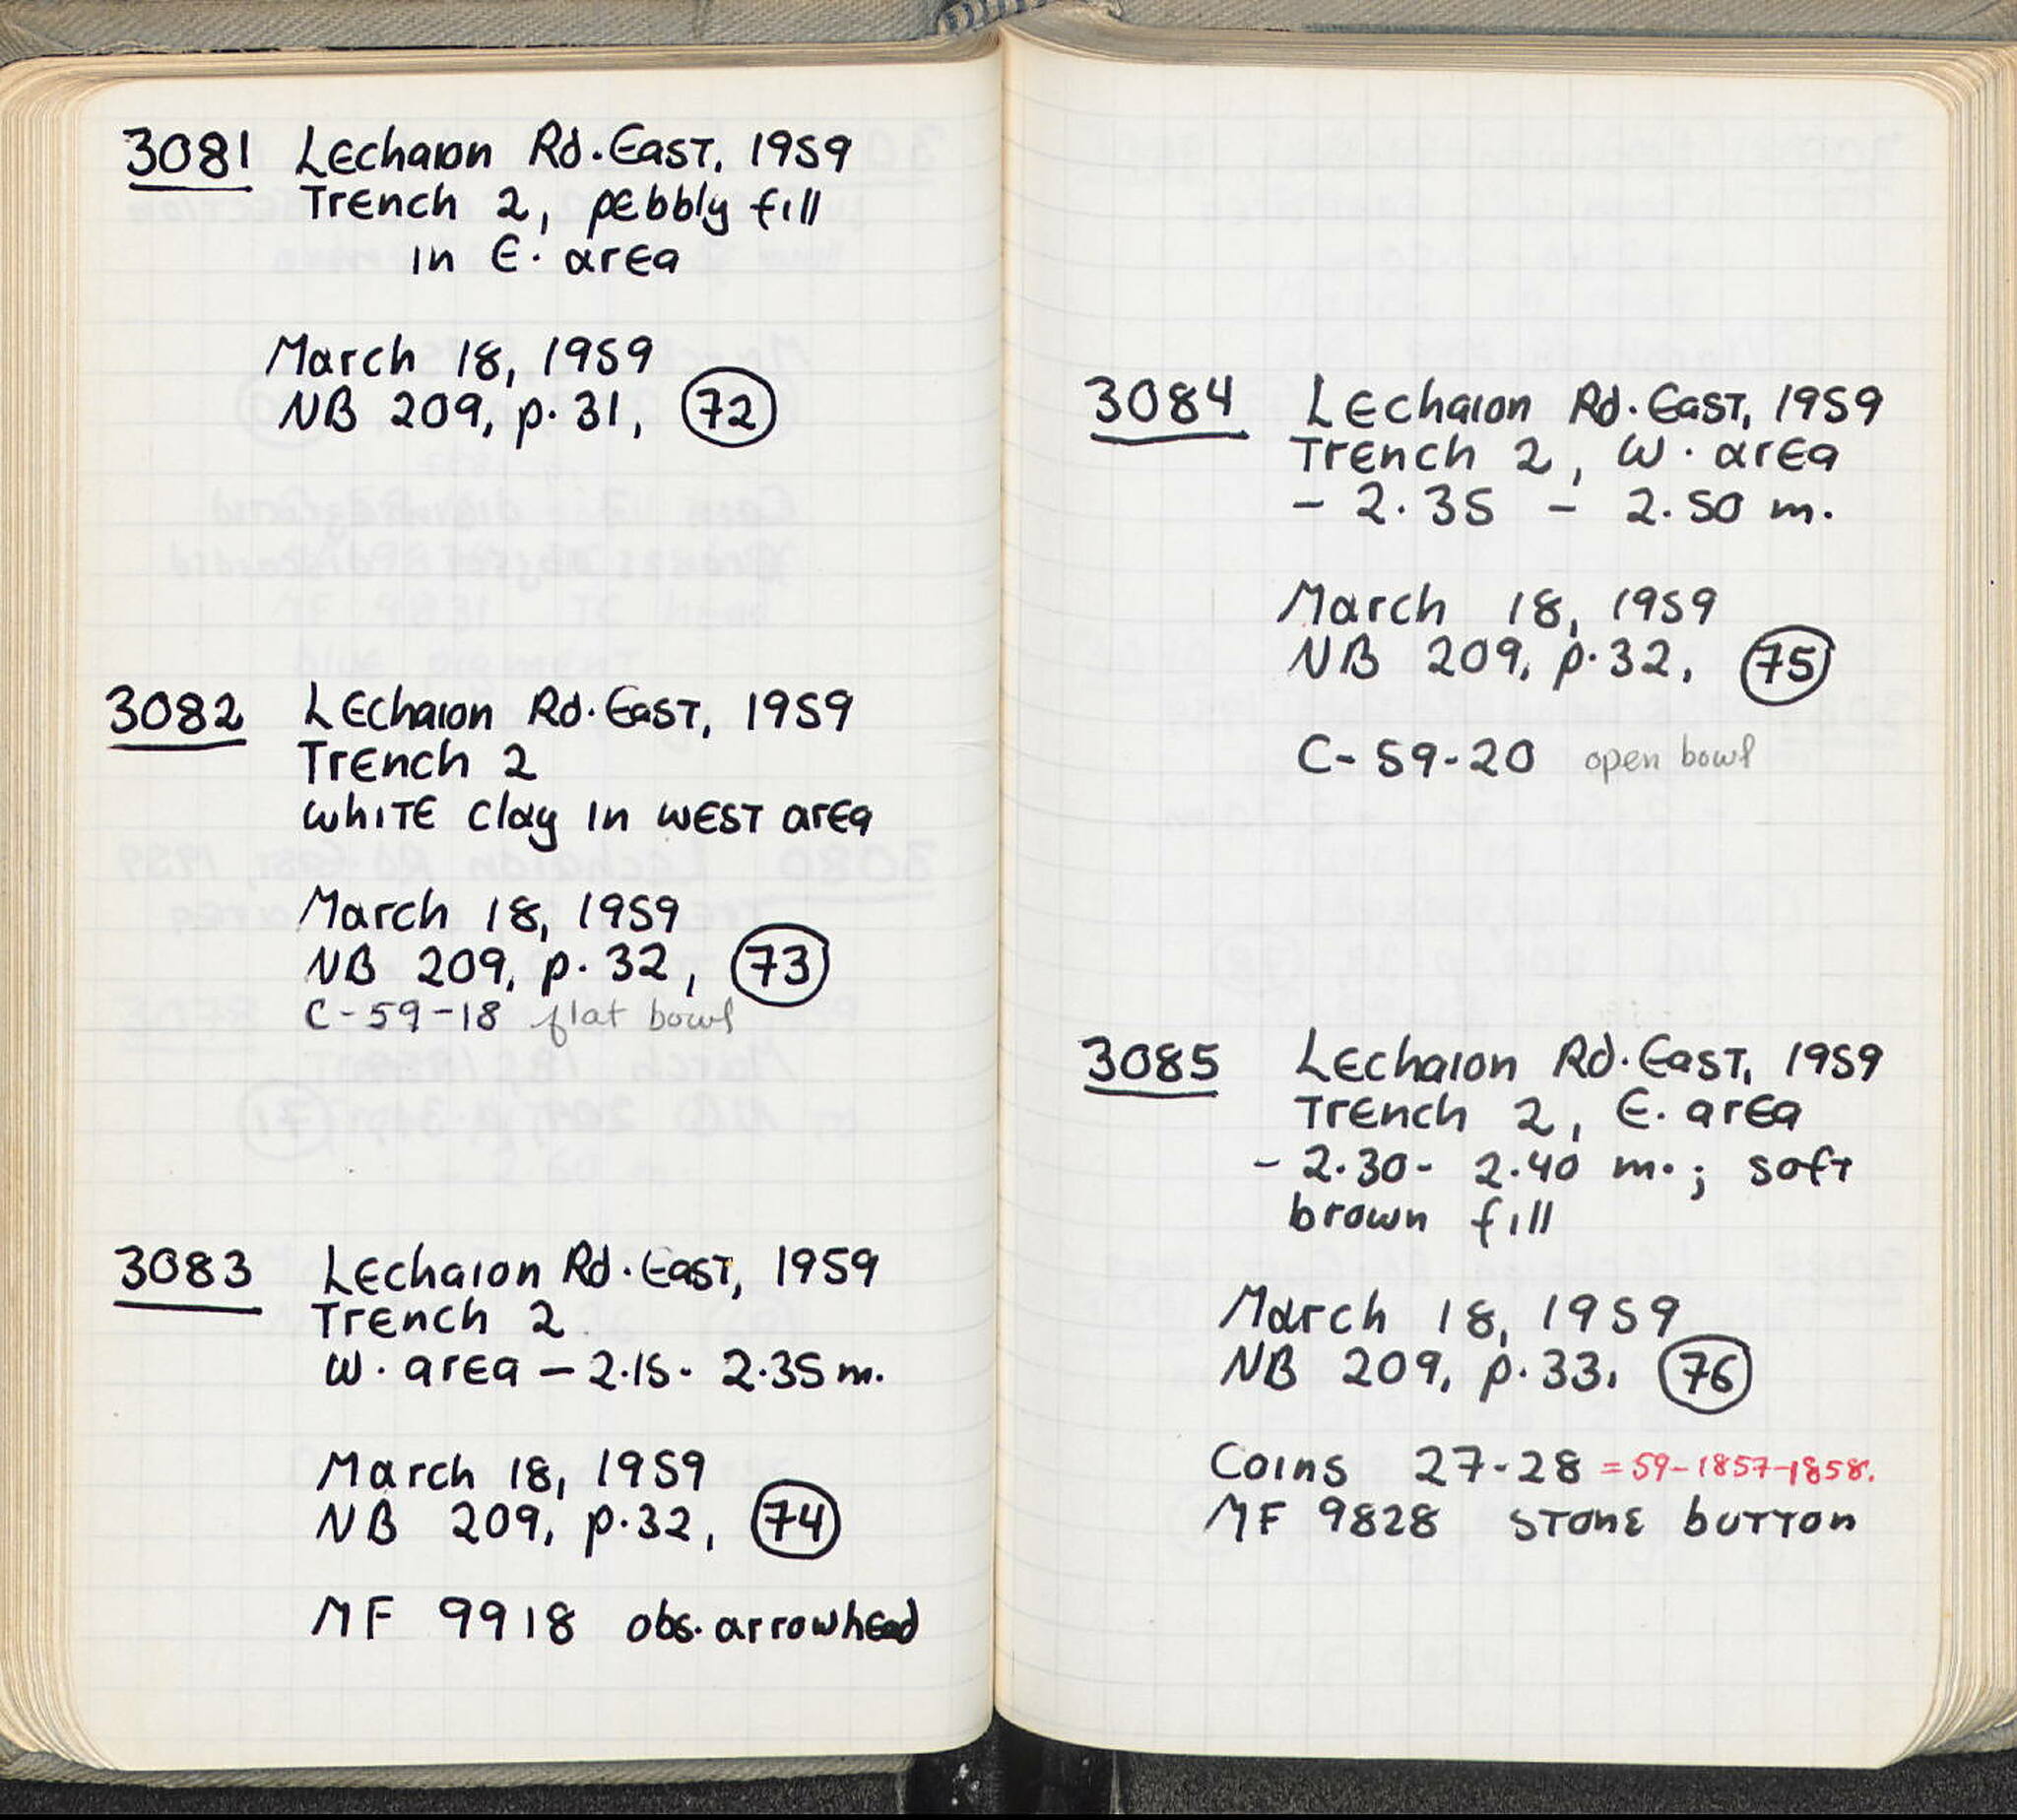 3081 Lechaion Rd. East, 1959
Trench 2, pebbly fill
in E. area
March 18, 1959
NB 209, p. 31, 72
3082 Lechaion Rd. East, 1959
Trench 2
white clay in west area
March 18, 1959
NB 209, p. 32, 73
C-59-18 flat bowl
3083 Lechaion Rd. East, 1959
Trench 2
W. area - 2.15 - 2.35 m.
March 18, 1959
NB 209, p. 32, 74
MF 9918 obs. arrowhead
3084 Lechaion Rd. East, 1959
Trench 2, W. area
- 2.35 - 2.50 m.
March 18, 1959
NB 209, p. 32, 75
C-59-20 open bowl
3085 Lechaion Rd. East, 1959
Trench 2, E. area
- 2.30 - 2.40 m.; soft
brown fill
March 18, 1959
NB 209, p. 33, 76
Coins 27-28 = 59-1857-1858.
MF 9828 stone button